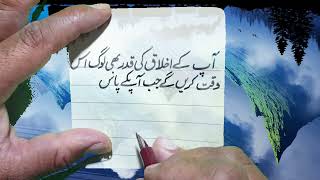 آپ کے اخلاق کی قدر بھی لوگ اس
وقت کریں گے جب آپکے پاس